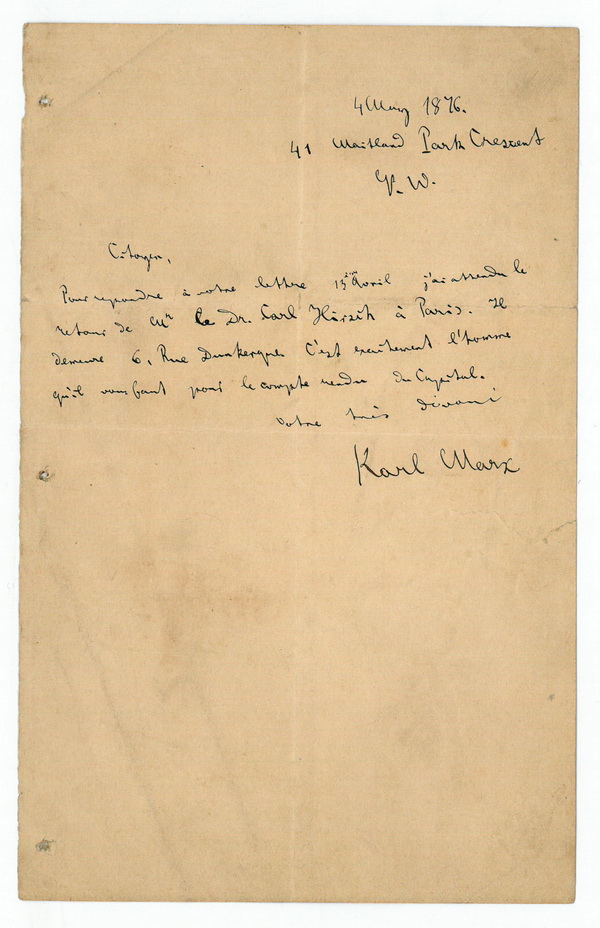 4 May 1876.
41 Maitland Park Crescent
N. W.
Citoyen,
Pour repondre à votre lettre 15 Avril j'ai attendu le
retour de Mr le Dr. Carl Hirsch à Paris. Il
demeure 6, Rue Dunkerque. C'est exactement l'homme
qu'il vous faut pour le compte rendu du Capital.
votre très dévoué
Karl Marx